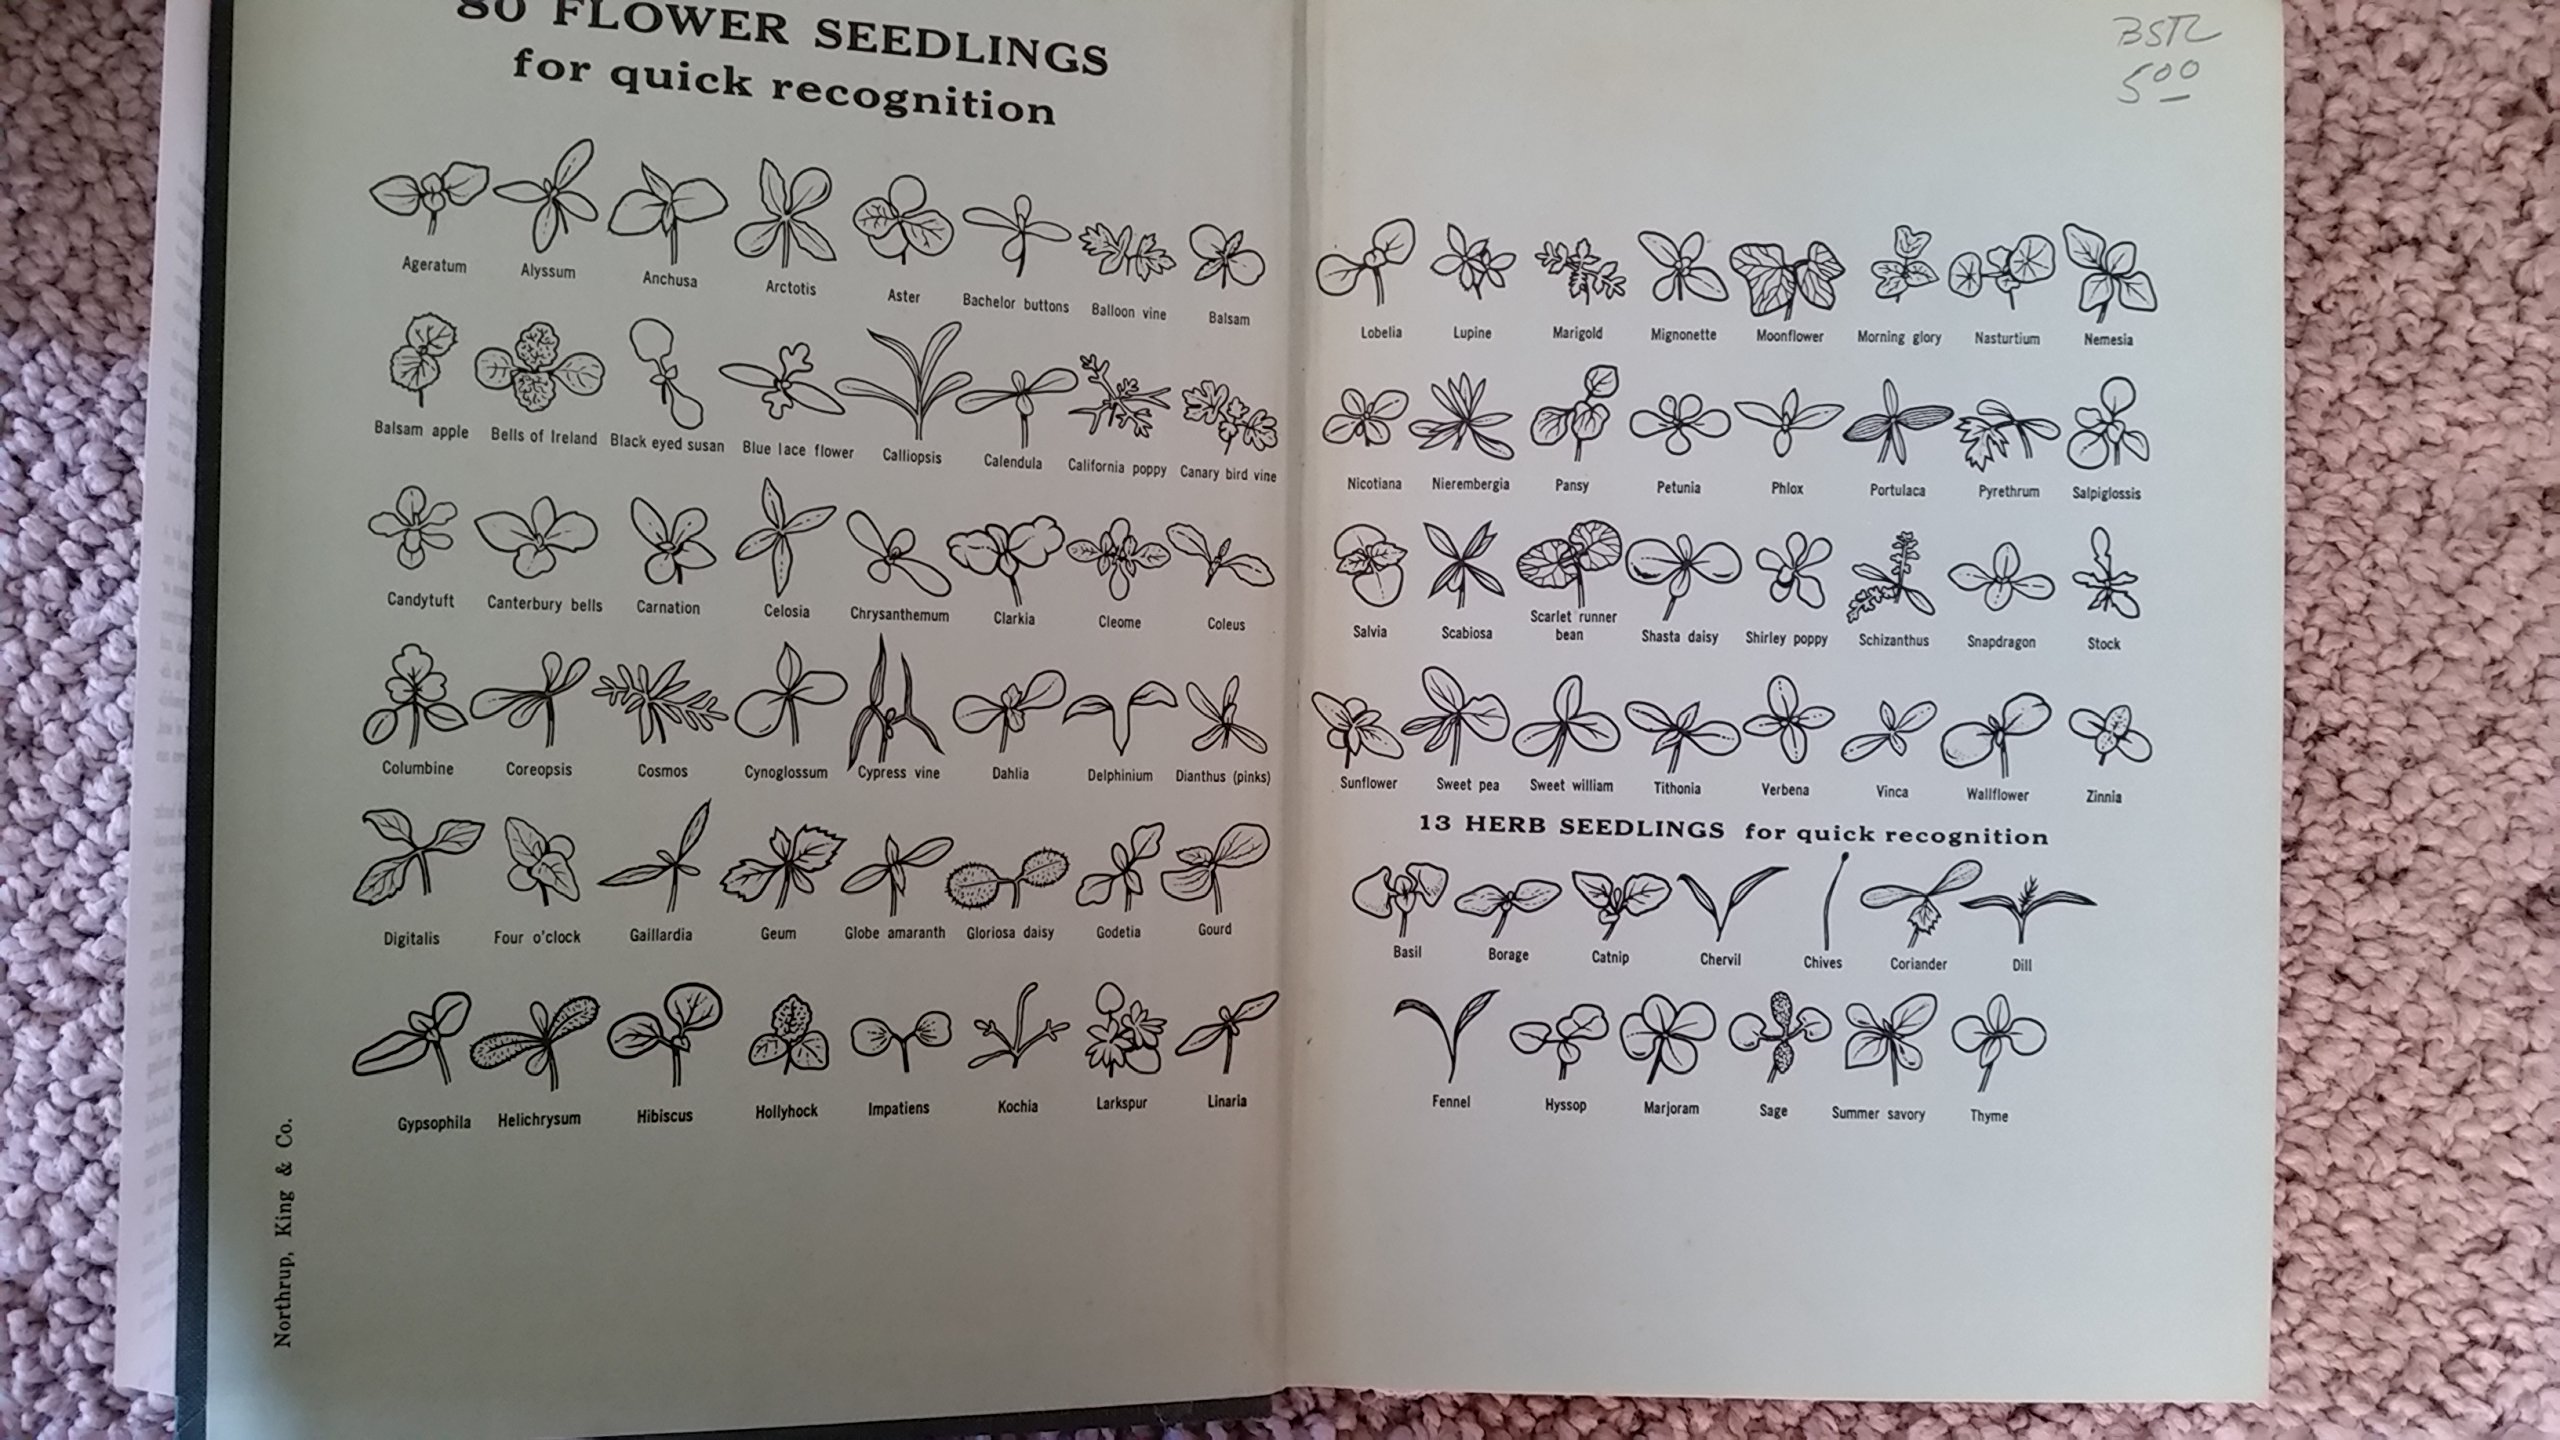 80 FLOWER SEEDLINGS
for quick recognition
Ageratum Alyssum Anchusa Arctotis Aster Bachelor buttons Balloon vine Balsam
Balsam apple Bells of Ireland Black eyed susan Blue lace flower Calliopsis Calendula California poppy Canary bird vine
Candytuft Canterbury bells Carnation Celosia Chrysanthemum Clarkia Cleome Coleus
Columbine Coreopsis Cosmos Cynoglossum Cypress vine Dahlia Delphinium Dianthus (pinks)
Digitalis Four o'clock Gaillardia Geum Globe amaranth Gloriosa daisy Godetia Gourd
Gypsophila Helichrysum Hibiscus Hollyhock Impatiens Kochia Larkspur Linaria
Northrup, King & Co.
BSTR
500
Lobelia Lupine Marigold Mignonette Moonflower Morning glory Nasturtium Nemesia
Nicotiana Nierembergia Pansy Petunia Phlox Portulaca Pyrethrum Salpiglossis
Salvia Scabiosa Scarlet runner bean Shasta daisy Shirley poppy Schizanthus Snapdragon Stock
Sunflower Sweet pea Sweet william Tithonia Verbena Vinca Wallflower Zinnia
13 HERB SEEDLINGS for quick recognition
Basil Borage Catnip Chervil Chives Coriander Dill
Fennel Hyssop Marjoram Sage Summer savory Thyme